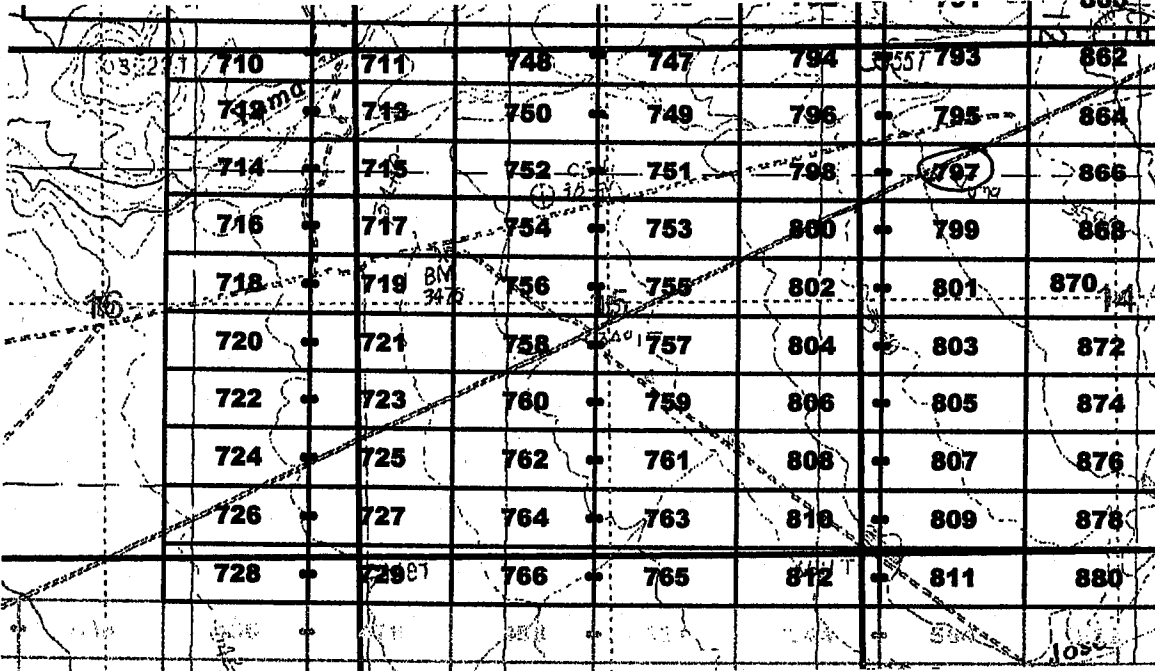 710 711 748 747 794 3755T 793 862
712 713 750 749 796 795 864
714 715 752 751 798 797 866
716 717 754 753 800 799 868
718 719 BM 3475 756 755 802 801 870
16 15 14
720 721 758 757 804 803 872
722 723 760 759 806 805 874
724 725 762 761 808 807 876
726 727 764 763 810 809 878
728 729 766 765 812 811 880
Jose